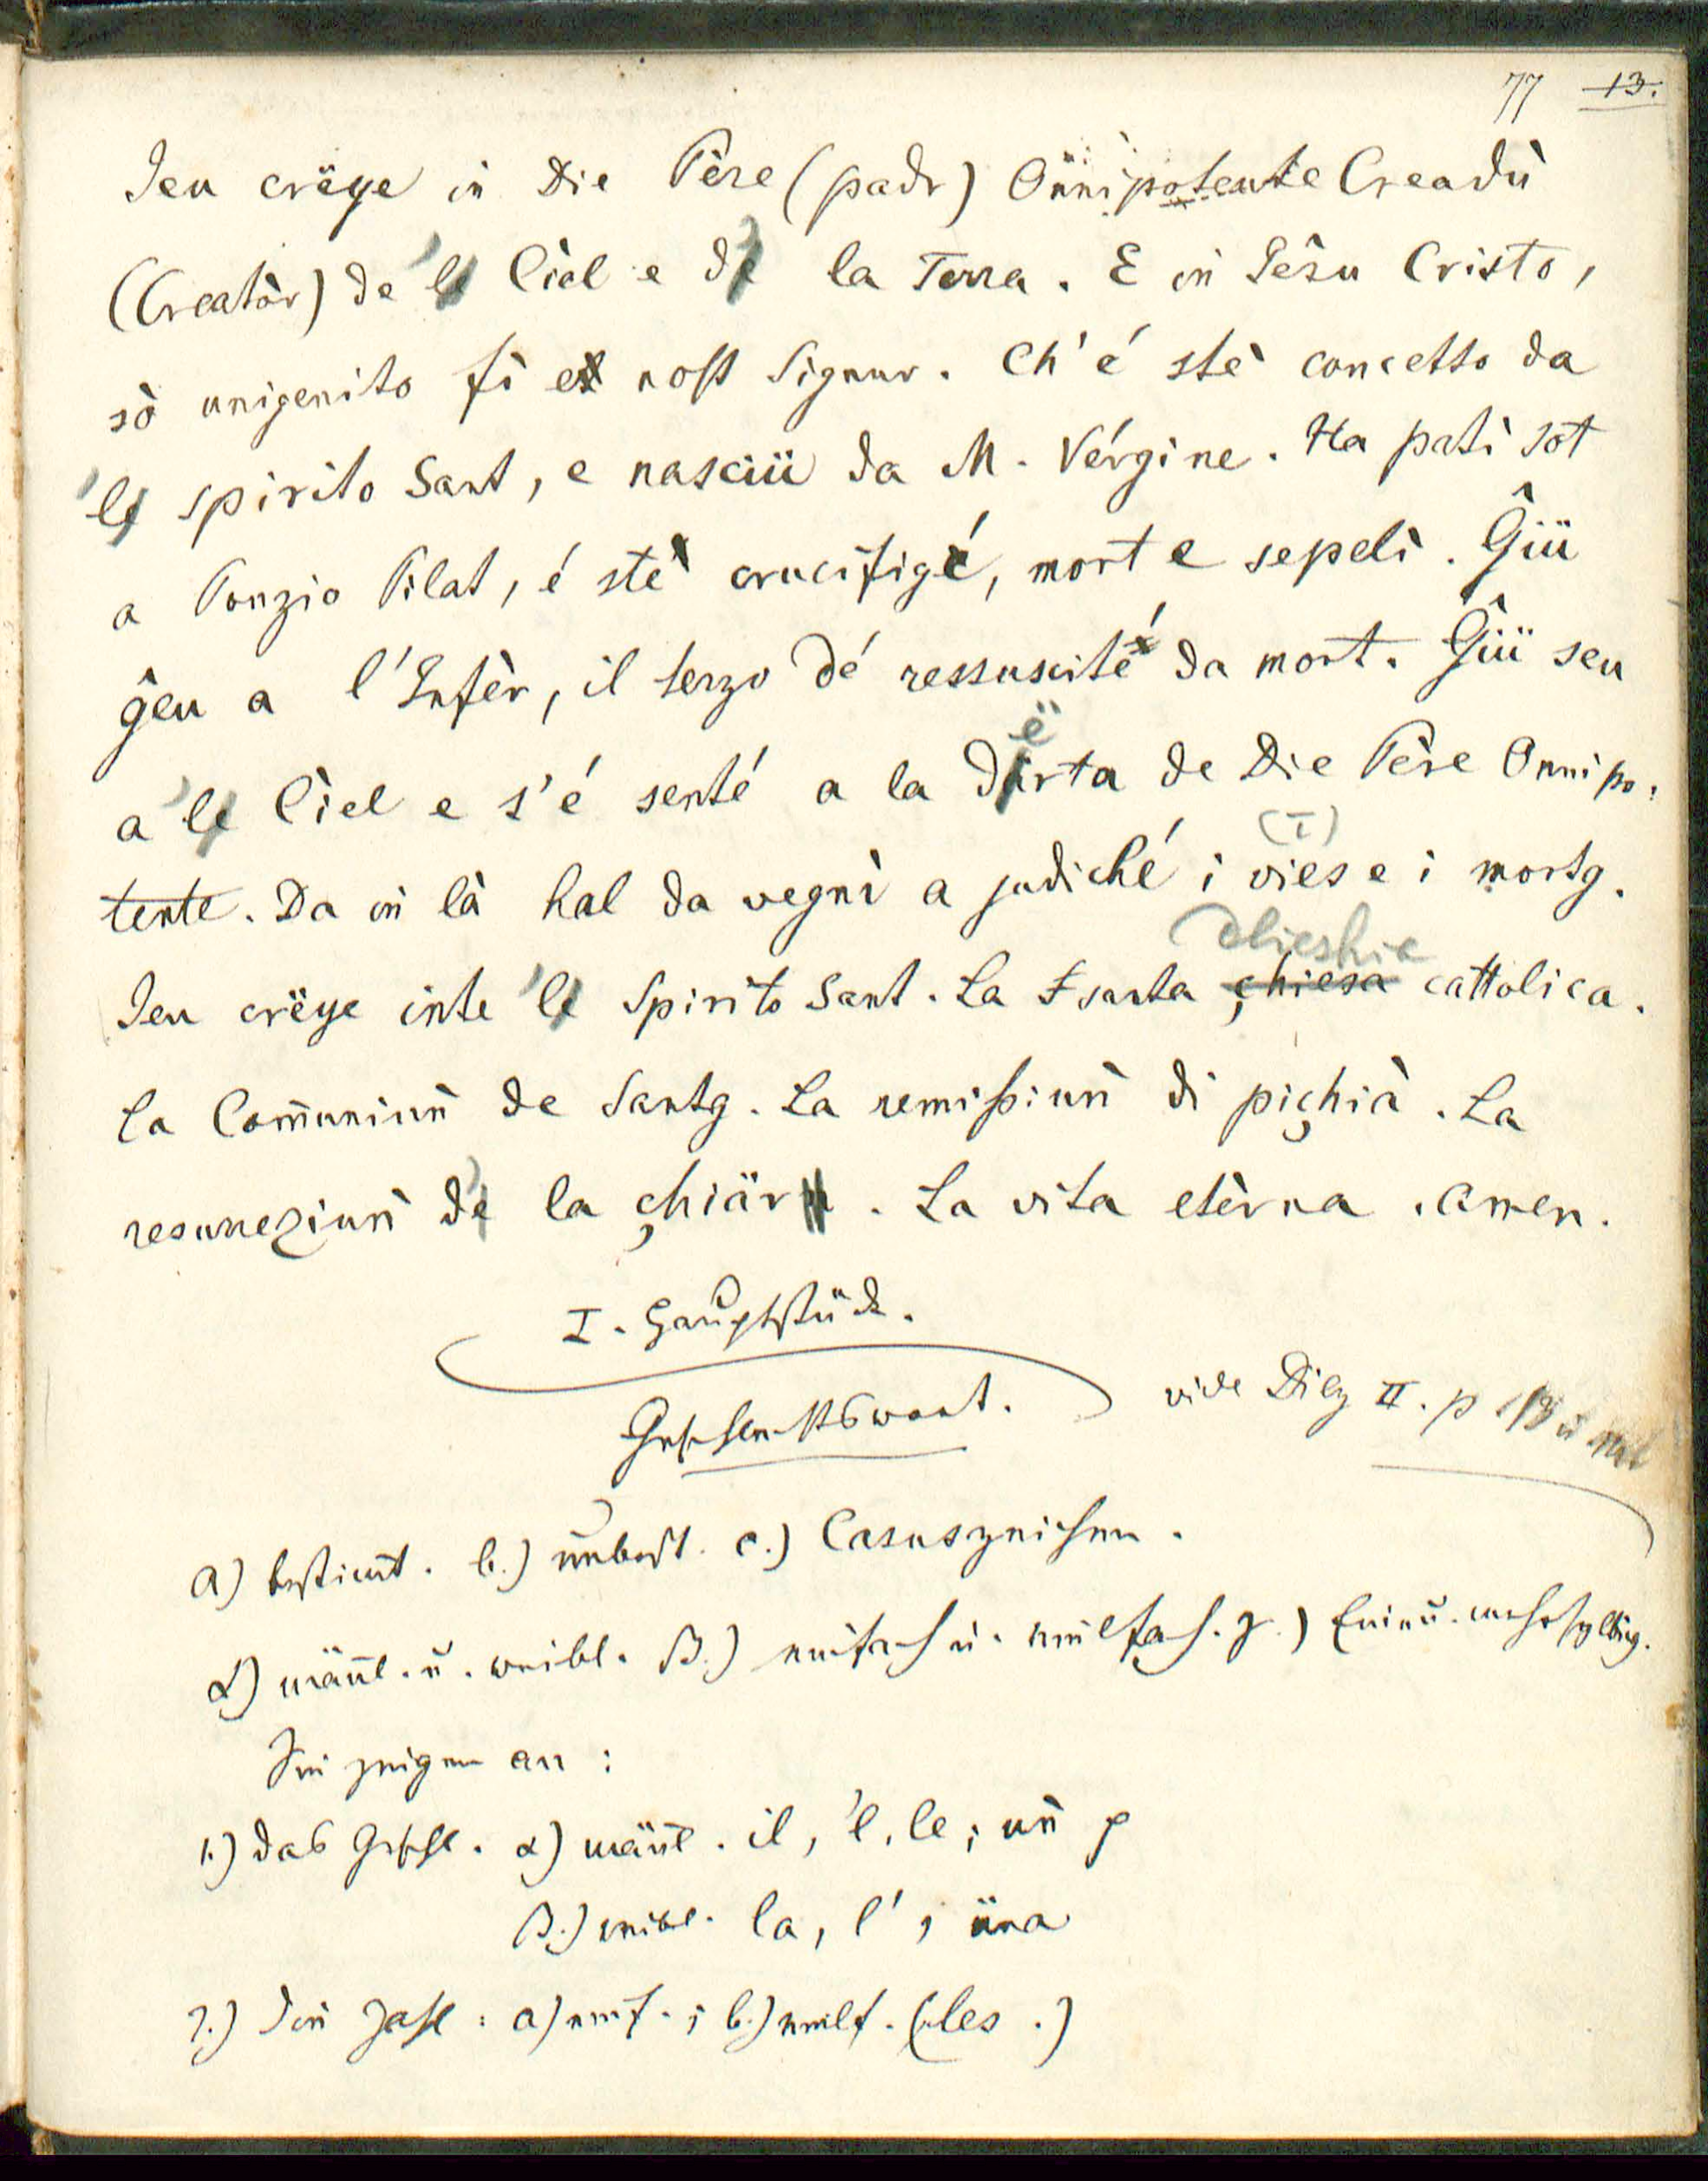 77 13.
Jeu crëye in Die Père (padr) Onnipotente Creadù
(Creatòr) de 'le Cièl e de la Terra. E in Jèsu Cristo,
sò unigenito fi et nost Signur. Ch'é stè concetto da
'le spirito Sant, e nasciü da M. Vérgine. Ha patì sot
a Ponzio Pilat, é stè crucifigé, mort e sepelì. Ĝiü
ĝeu a l'Infèr, il terzo dé ressuscité da mort. Ĝiü seu
a 'le Cìel e s'é senté a la dërta de Die Père Onnipo:
tente. Da in là hal da vegnì a judiché i vies e i mortg.
(I)
Jeu crëye inte 'le Spirito Sant. La santa çhiesa dlieshie cattolica.
La Com̅uniun̄ de Santg. La remißiun̄ di piçhià. La
resurreziun̄ de la çhiär. La vita etèrna. Amen.
I. Hauptstück.
Geschlechtswort. vide Diez II. p.
a) bestim̅t. b.) unbest. c.) Casuszeichen.
α) män̅l. u. weibl. β.) einfach u. vielfach. γ.) Ein u. mehrsylbig.
Sie zeigen an:
1.) das Geschl. α) män̅l. il, 'l, le; un̄
β.) weibl. la, l', üna
2.) die Zahl: a) einf.; b.) vielf. (les.)